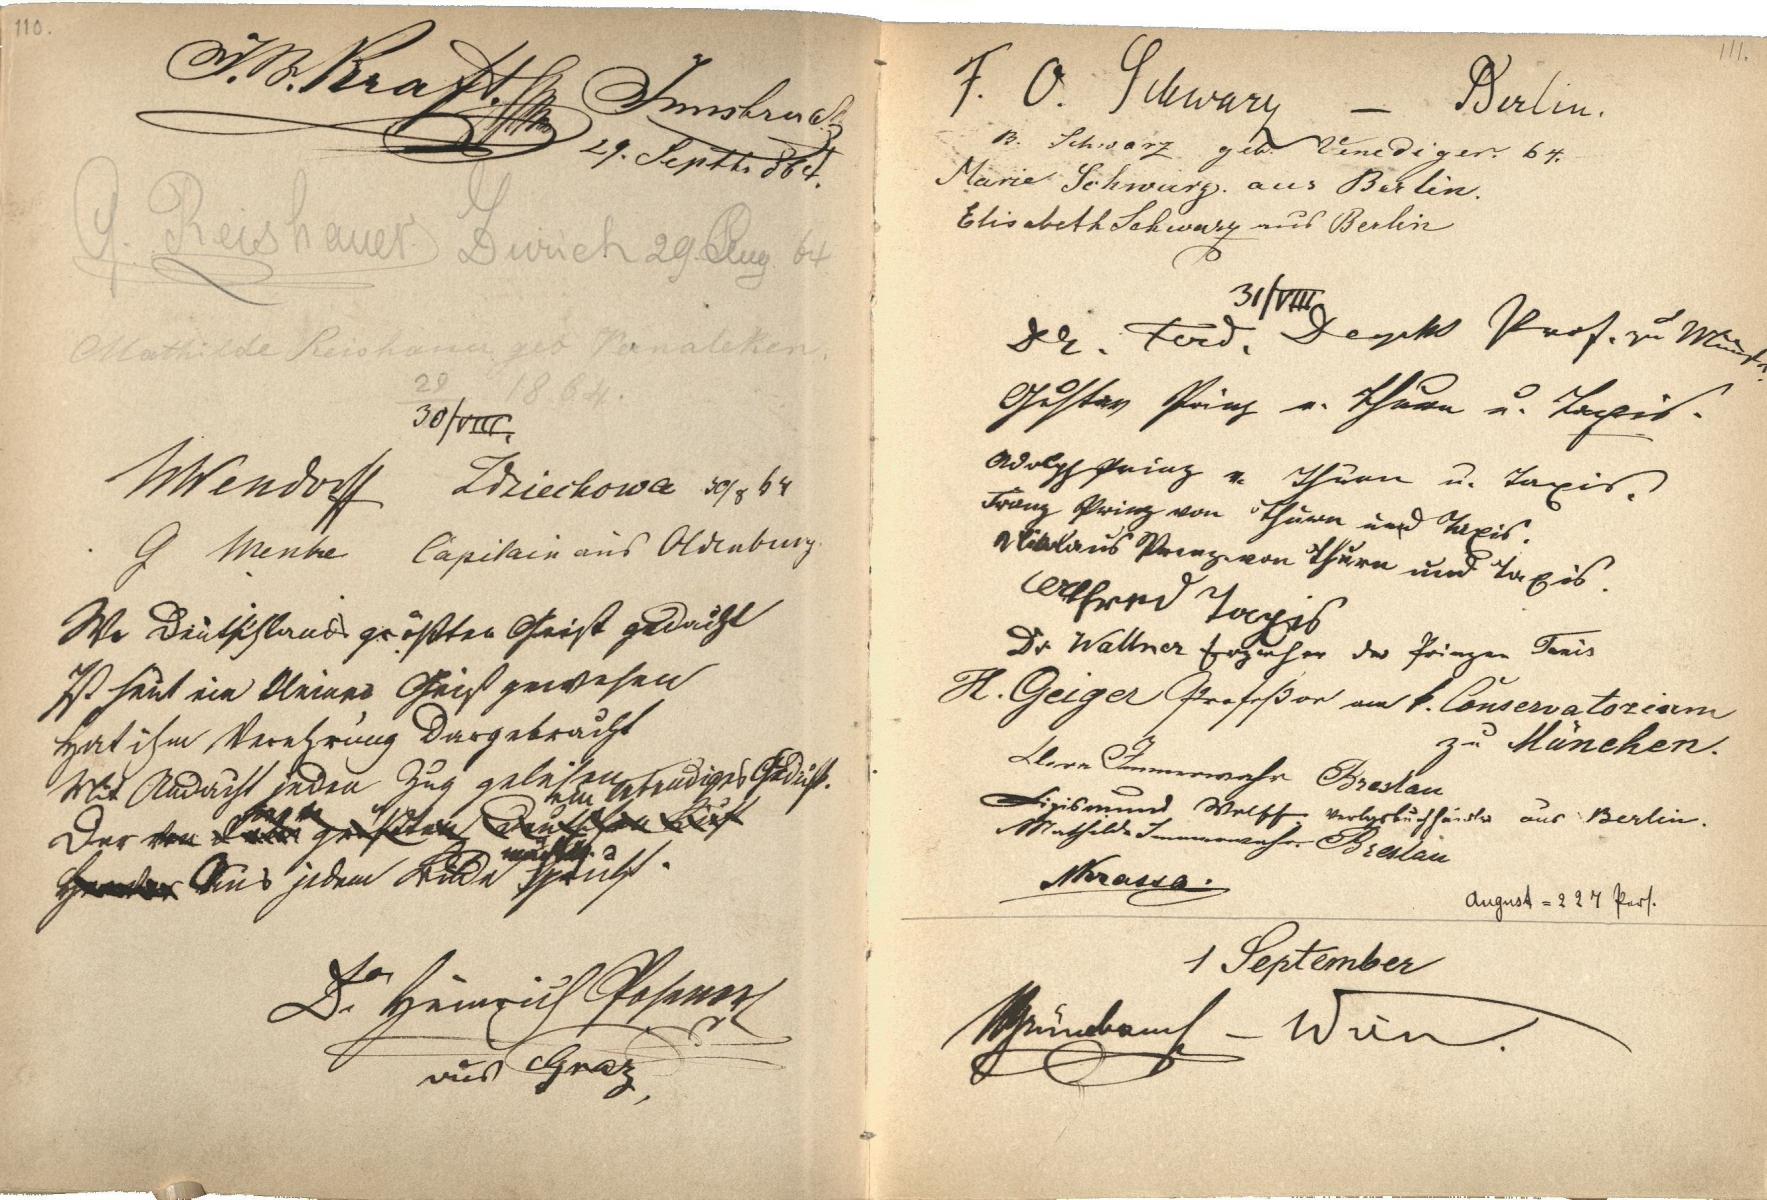 110.
J. B. Kraft. Innsbruck
29. Septb. 864.
G. Reishauer Zürich 29. Aug. 64
Mathilde Reishauer geb
29 1864.
30/VIII.
Wendorff Zdziechowa 30/8 64
G Menke Capitain aus Oldenburg.
Wo Deutschlands größter Geist gedacht
Ist heut ein kleiner Geist gewesen
Hat ihm Verehrung dargebracht
Mit Andacht jeden Zug gelesen
ein lebendiges Gedicht.
Der
Aus jedem spricht.
Dr Heinrich
aus Graz,
111.
F. O. Schwarz – Berlin.
B. Schwarz geb. Venediger. 64.
Marie Schwarz. aus Berlin.
Elisabeth Schwarz aus Berlin
31/VIII
Dr. Ferd. Deycks Prof. zu Münster.
Gustav Prinz v. Thurn u. Taxis.
Adolph Prinz v. Thurn u. Taxis.
Franz Prinz von Thurn und Taxis.
Nikolaus Prinz von Thurn und Taxis.
Alfred Taxis
Dr Wallner Erzieher der Prinzen Taxis
H. Geiger Professor am k. Conservatorium
zu München.
Clara Immerwahr Breslau
Sigismund Wolff Verlagsbuchhändler aus Berlin.
Mathilde Immerwahr. Breslau
August = 227 Pers.
1 September
Grünebaum – Wien.